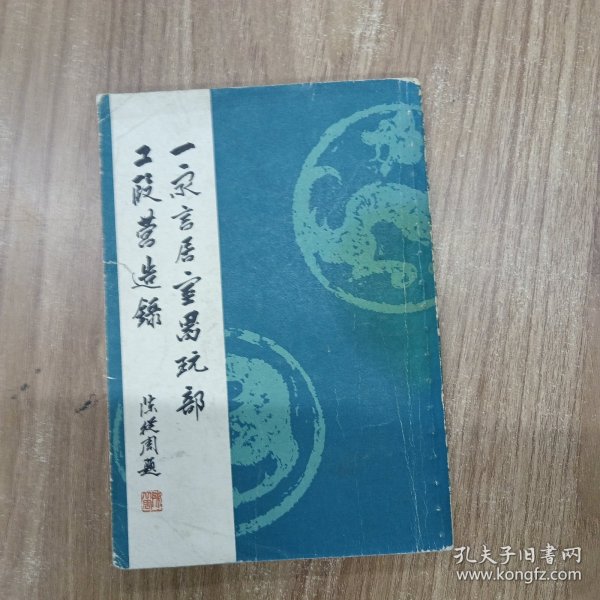 一家言居室器玩部
工段营造录
陈从周题
孔夫子旧书网
www.kongfz.com